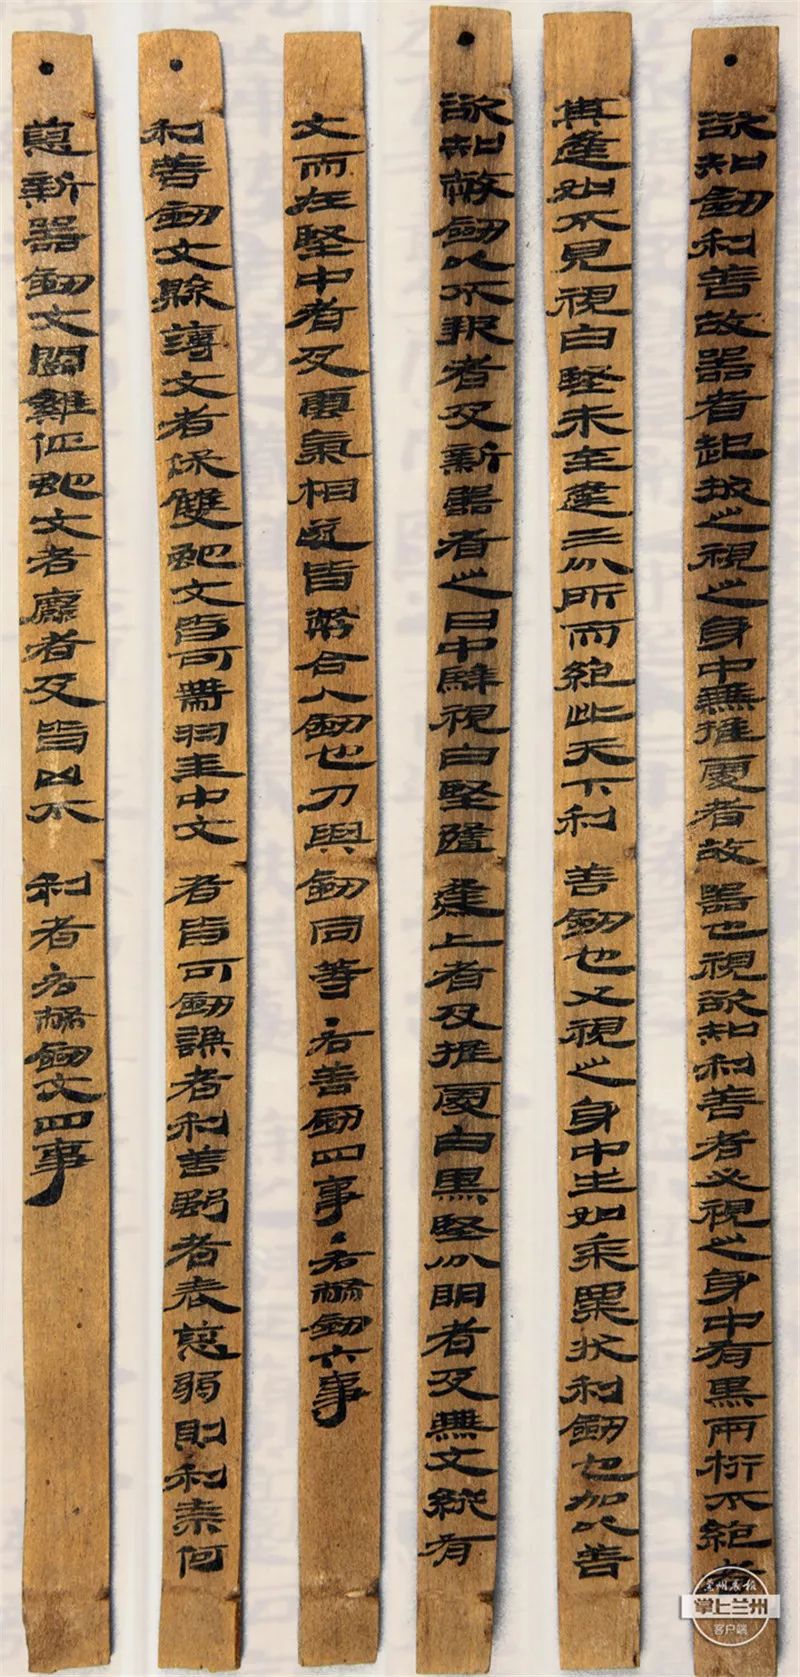 欲知劍利善故器者起拔之視之身中無推處者故器也視欲知利善者必視之身中有黑兩桁不絕者
其逢如不見視白堅未至逢三分所而絕此天下利善劍也又視之身中生如黍粟狀利劍也加以善
欲知幣劍以不報者及新器者之日中騂視白堅隨逢上者及推處白黑堅分明者及無文縱有
文而在堅中者及雲氣相遂皆幣合人劍也刀與劍同等·右善劍四事·右幣劍六事
利善劍文縣薄文者保雙蛇文皆可帶羽圭中文者皆可劍謙者利善強者表惡弱則利奈何
惡新器劍文鬥雞佂蛇文者麤者及皆凶不利者右幣劍文四事
兰州晨报
掌上兰州
客户端